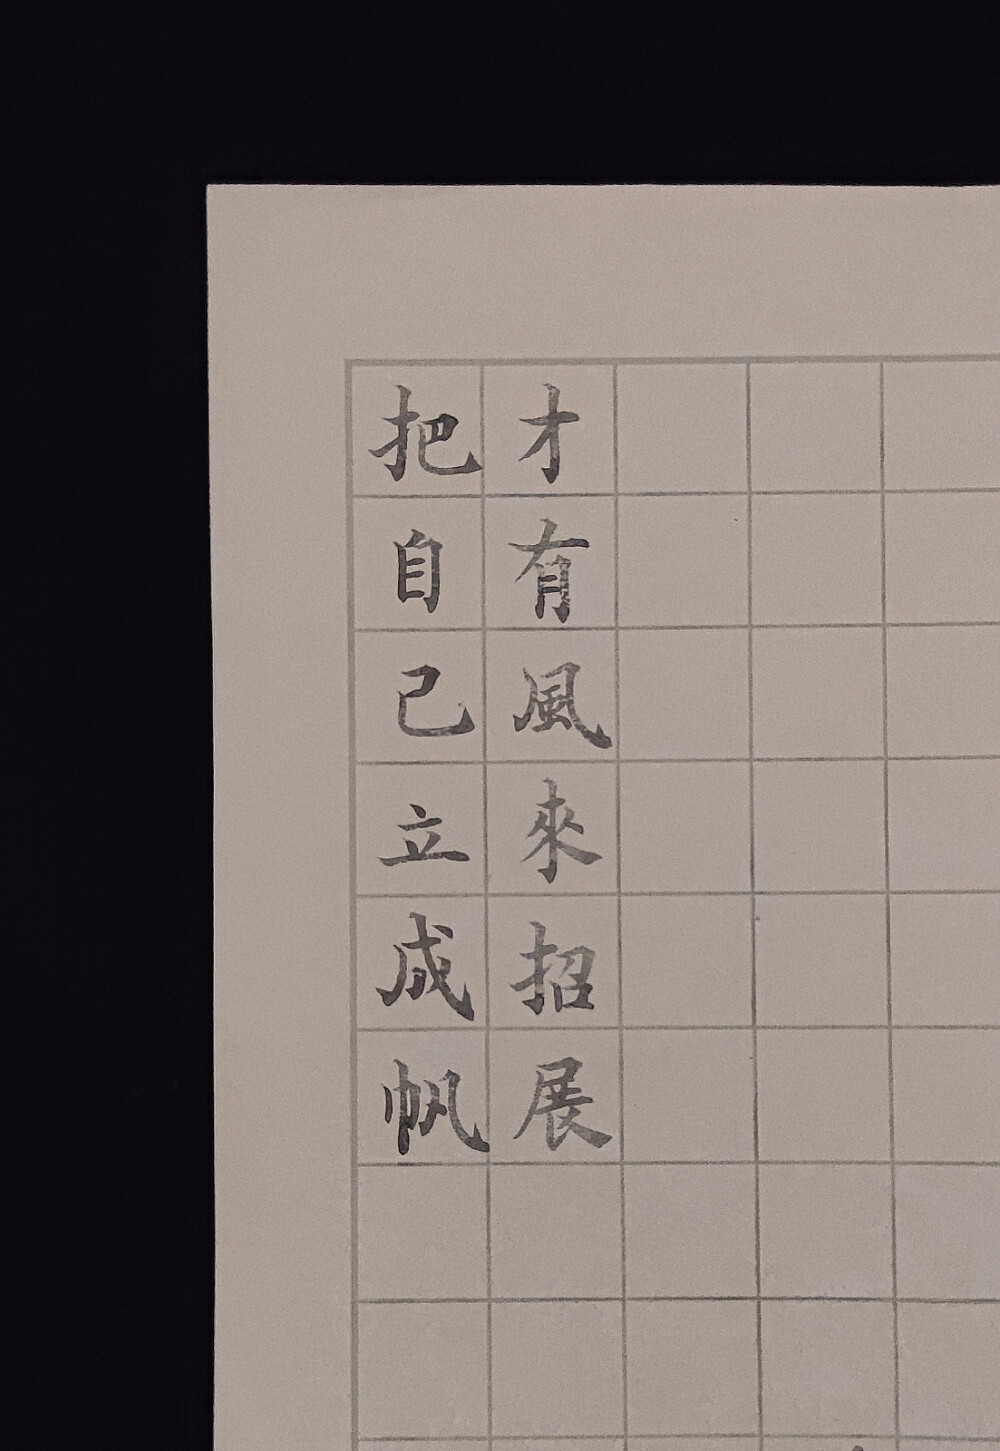 把自己立成帆
才有風來招展